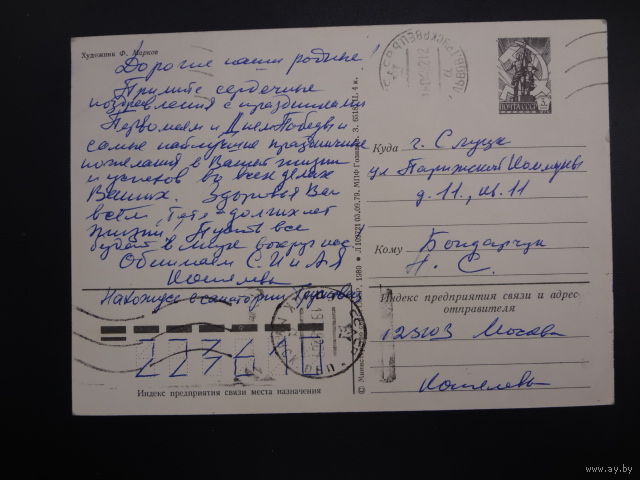 Художник Ф. Марков
Дорогие наши родные!
Примите сердечные
поздравления с праздниками
Первомаем и Днем Победы и
самые наилучшие праздничные
пожелания в Вашей жизни
и успехов во всех делах
Ваших. Здоровья Вам
всем, Тётя - долгих лет
жизни. Пусть все
будет в мире вокруг нас.
Обнимаем С. И и А. Я
Кошелевы
Нахожусь в санатории
ПОЧТА СССР
Куда г. Слуцк
ул Парижской Коммуны
д. 11, кв. 11
Кому Бондарчук
Н. С.
Индекс предприятия связи и адрес
отправителя
Москва
Кошелевы
Индекс предприятия связи места назначения
www.ay.by